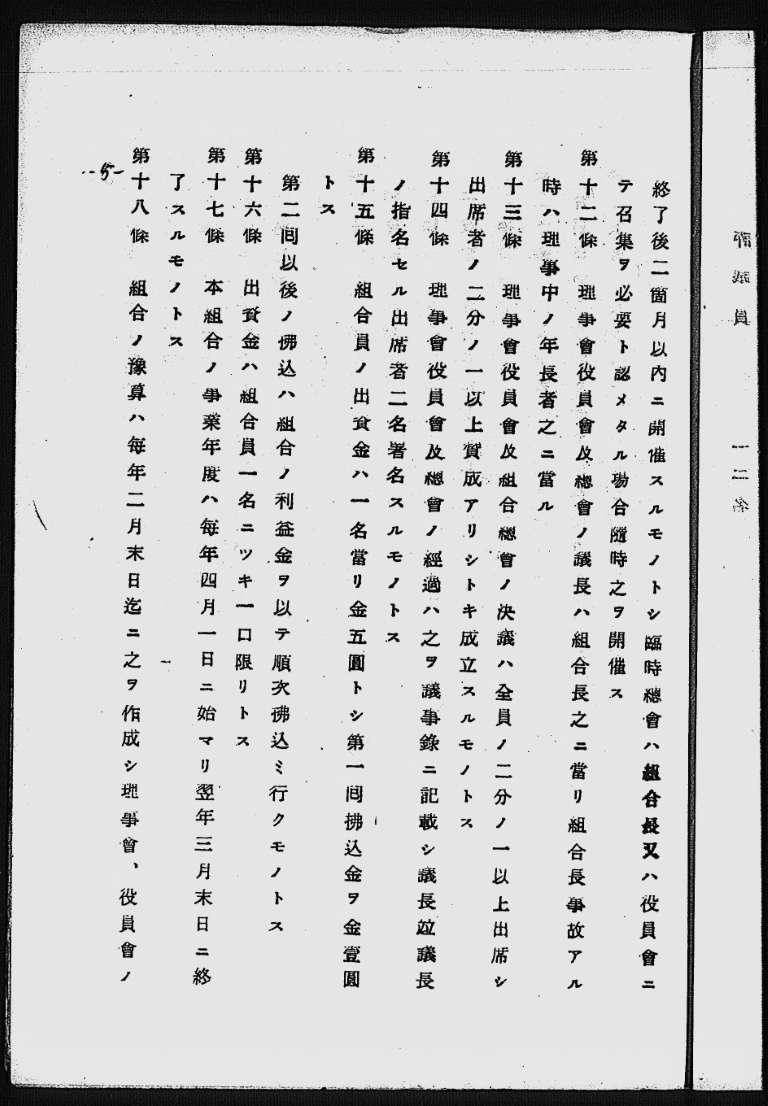 終了後二箇月以内ニ開催スルモノトシ臨時總會ハ組合長又ハ役員會ニ
テ召集ヲ必要ト認メタル場合隨時之ヲ開催ス
第十二條　理事會役員會及總會ノ議長ハ組合長之ニ當リ組合長事故アル
時ハ理事中ノ年長者之ニ當ル
第十三條　理事會役員會及組合總會ノ決議ハ全員ノ二分ノ一以上出席シ
出席者ノ二分ノ一以上賛成アリシトキ成立スルモノトス
第十四條　理事會役員會及總會ノ經過ハ之ヲ議事錄ニ記載シ議長竝議長
ノ指名セル出席者二名署名スルモノトス
第十五條　組合員ノ出資金ハ一名當リ金五圓トシ第一回拂込金ヲ金壹圓
トス
第二回以後ノ拂込ハ組合ノ利益金ヲ以テ順次拂込ミ行クモノトス
第十六條　出資金ハ組合員一名ニツキ一口限リトス
第十七條　本組合ノ事業年度ハ毎年四月一日ニ始マリ翌年三月末日ニ終
了スルモノトス
第十八條　組合ノ豫算ハ毎年二月末日迄ニ之ヲ作成シ理事會、役員會ノ
-5-